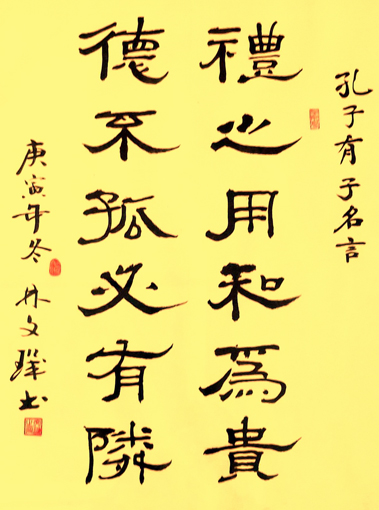 孔子有子名言
禮之用和爲貴
德不孤必有隣
庚寅年冬 林文书